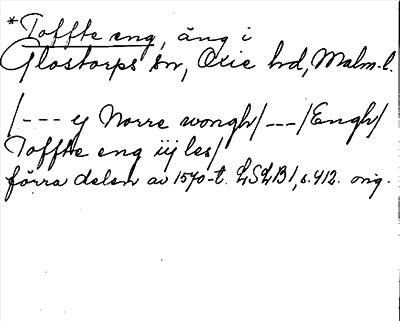 *Toffte eng, äng i
Glostorps sn, Oxie hd, Malm.l.
/--- y Norre wongh/---/Engh/
Toffte eng iij les/
förra delen av 1570-t. LSLB1, s.412. orig.